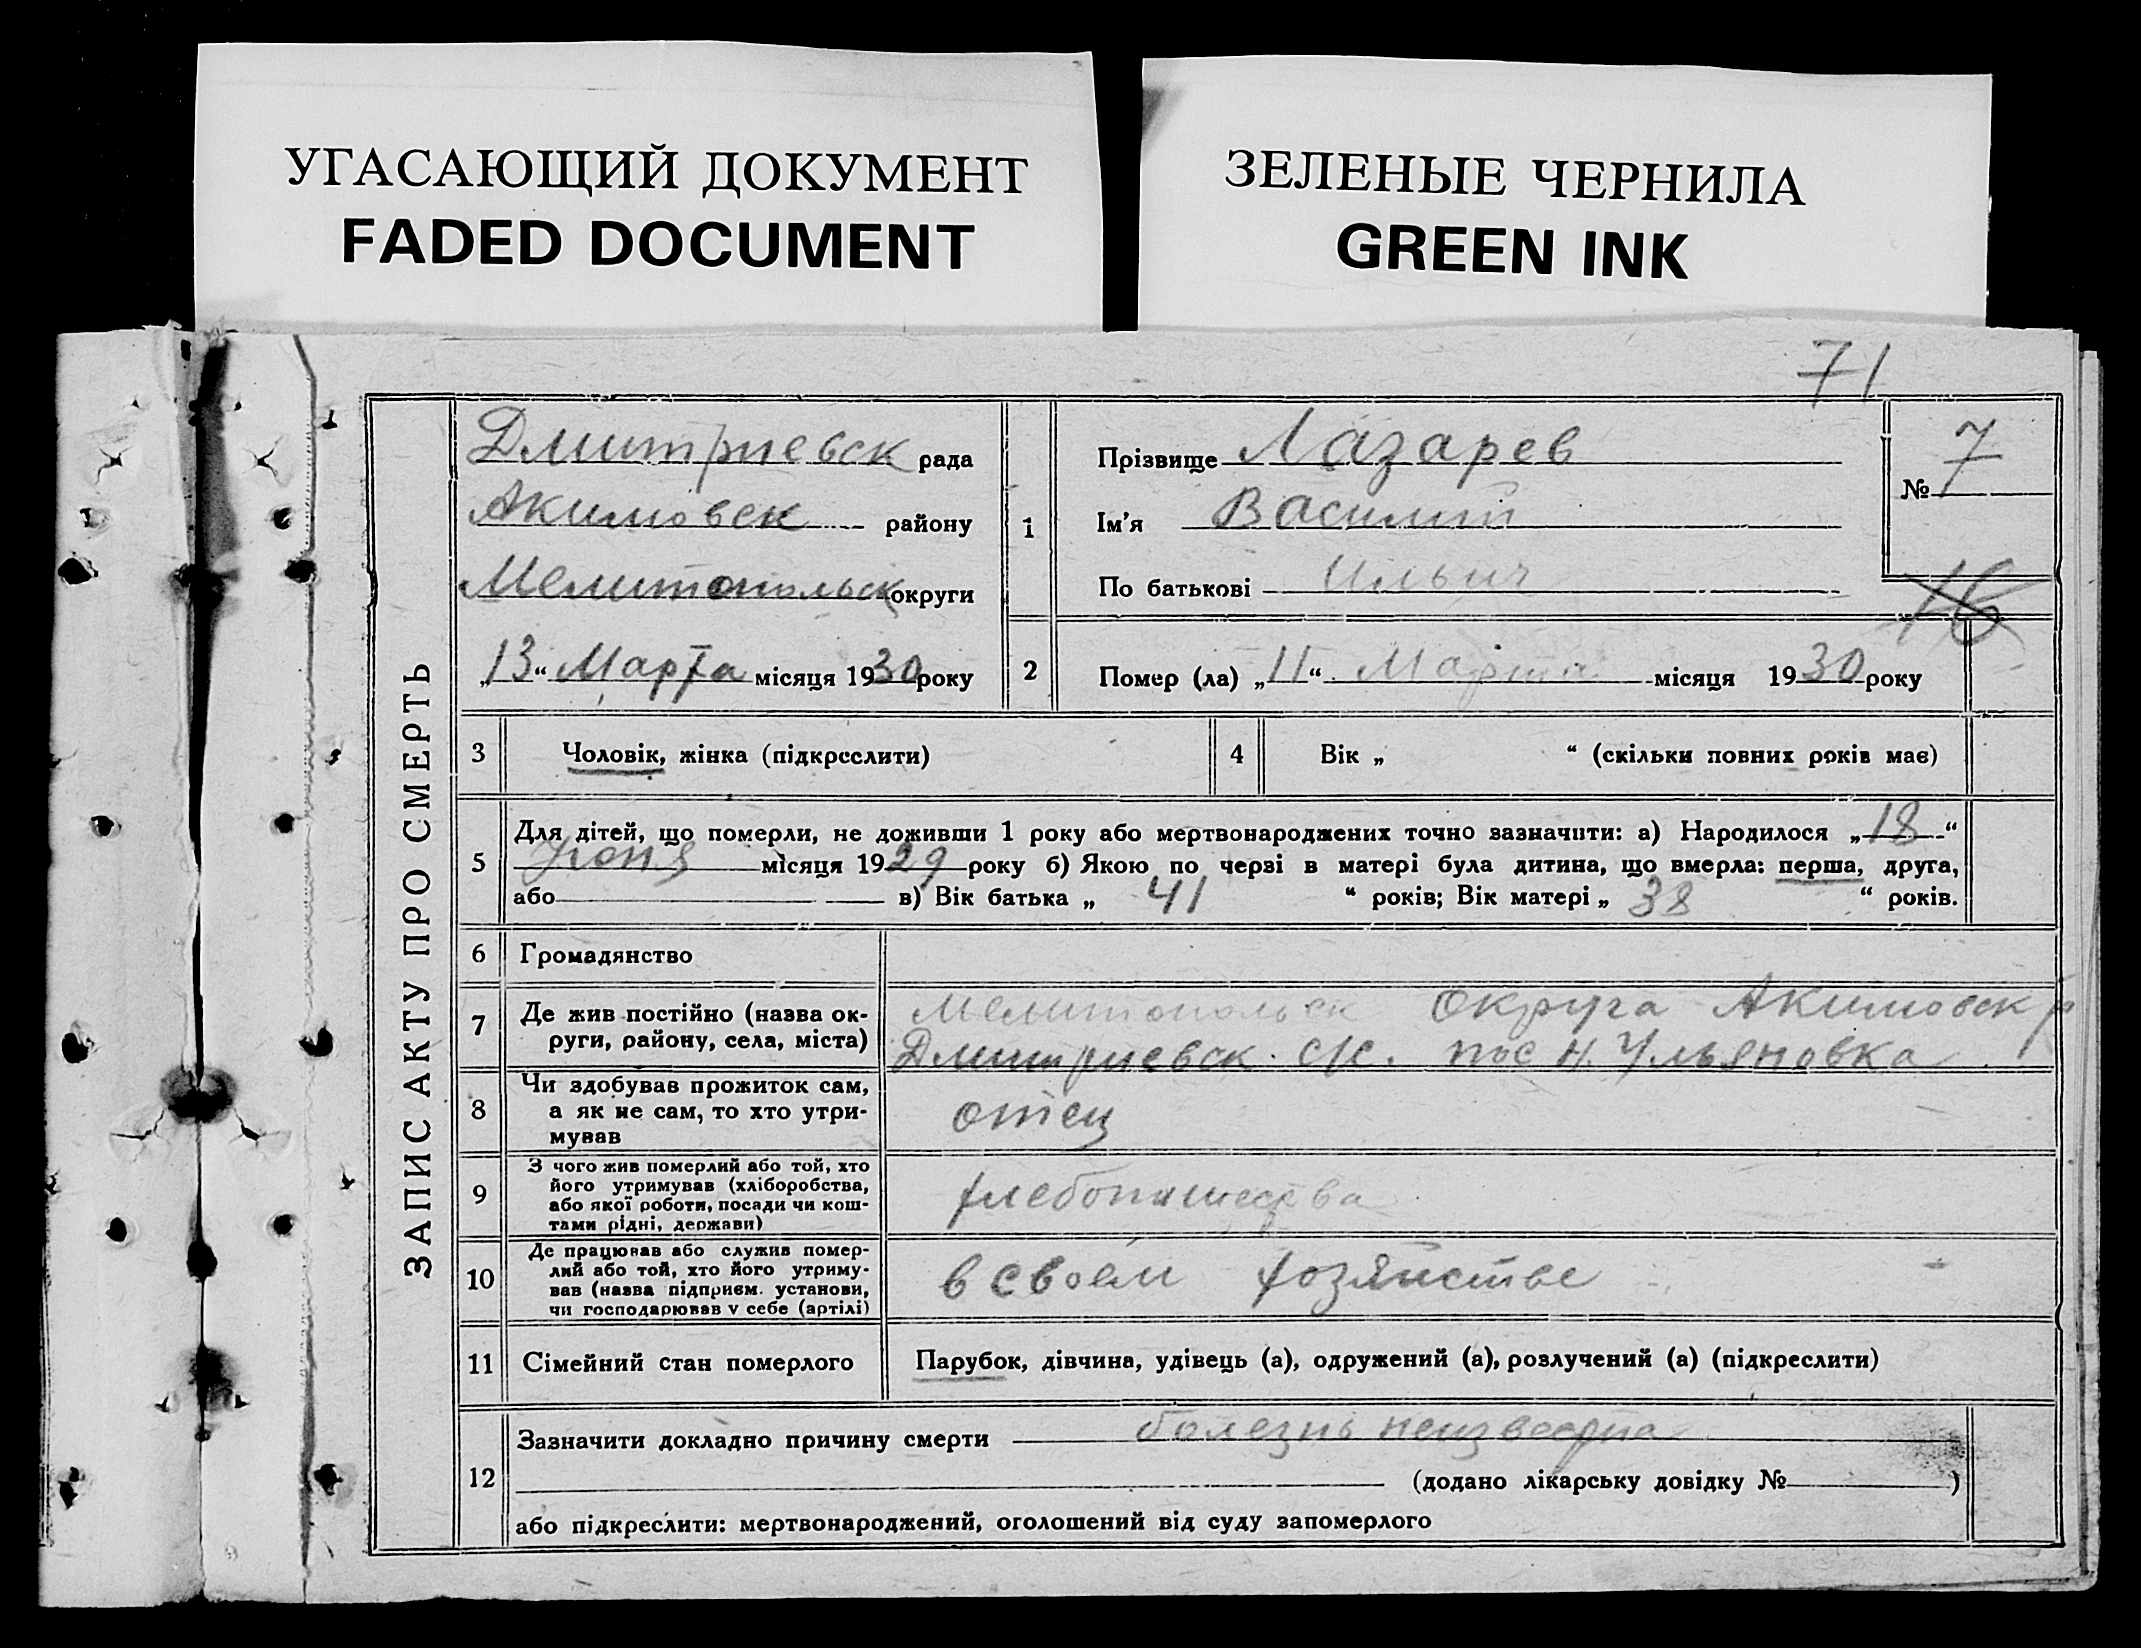 УГАСАЮЩИЙ ДОКУМЕНТ
FADED DOCUMENT
ЗЕЛЕНЫЕ ЧЕРНИЛА
GREEN INK
71
ЗАПИС АКТУ ПРО СМЕРТЬ
Дмитриевск рада
Акимовск району
Мелитопольск округи
„13“ Марта місяця 1930 року
1
Прізвище Лазарев
Ім’я Василий
По батькові Ильич
№ 7
16
2
Помер (ла) „11“ Марта місяця 1930 року
3 Чоловік, жінка (підкреслити)
4 Вік „ “ (скільки повних років має)
5
Для дітей, що померли, не доживши 1 року або мертвонароджених точно зазначити: а) Народилося „18“
Июня місяця 1929 року б) Якою по черзі в матері була дитина, що вмерла: перша, друга,
або в) Вік батька „ 41 “ років; Вік матері „ 38 “ років.
6 Громадянство
7
Де жив постійно (назва ок-
руги, району, села, міста)
Мелитопольск округа Акимовск р
Дмитриевск. с/с. пос Н. Ульяновка
8
Чи здобував прожиток сам,
а як не сам, то хто утри-
мував
отец
9
З чого жив померлий або той, хто
його утримував (хліборобства,
або якої роботи, посади чи кош-
тами рідні, держави)
хлебопашества
10
Де працював або служив помер-
лий або той, хто його утриму-
вав (назва підприєм. установи,
чи господарював у себе (артілі)
в своем хозяйстве
11 Сімейний стан померлого
Парубок, дівчина, удівець (а), одружений (а), розлучений (а) (підкреслити)
12
Зазначити докладно причину смерти болезнь неизвестна
(додано лікарську довідку № )
або підкреслити: мертвонароджений, оголошений від суду запомерлого